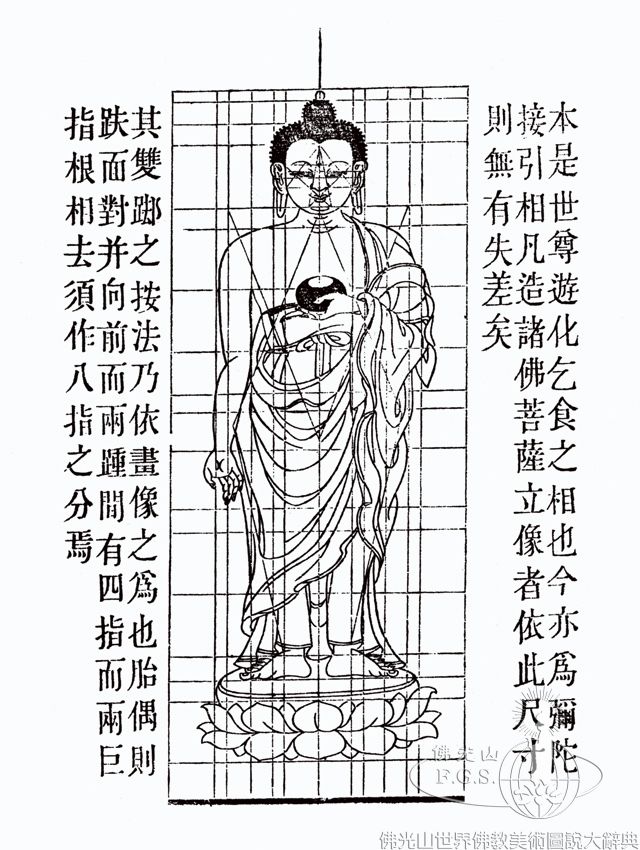 本是世尊遊化乞食之相也今亦爲彌陀
接引相凡造諸佛菩薩立像者依此尺寸
則無有失差矣
其雙踋之按法乃依畫像之爲也胎偶則
趺面對并向前而兩踵間有四指而兩巨
指根相去須作八指之分焉
佛光山
F.G.S.
佛光山世界佛教美術圖說大辭典